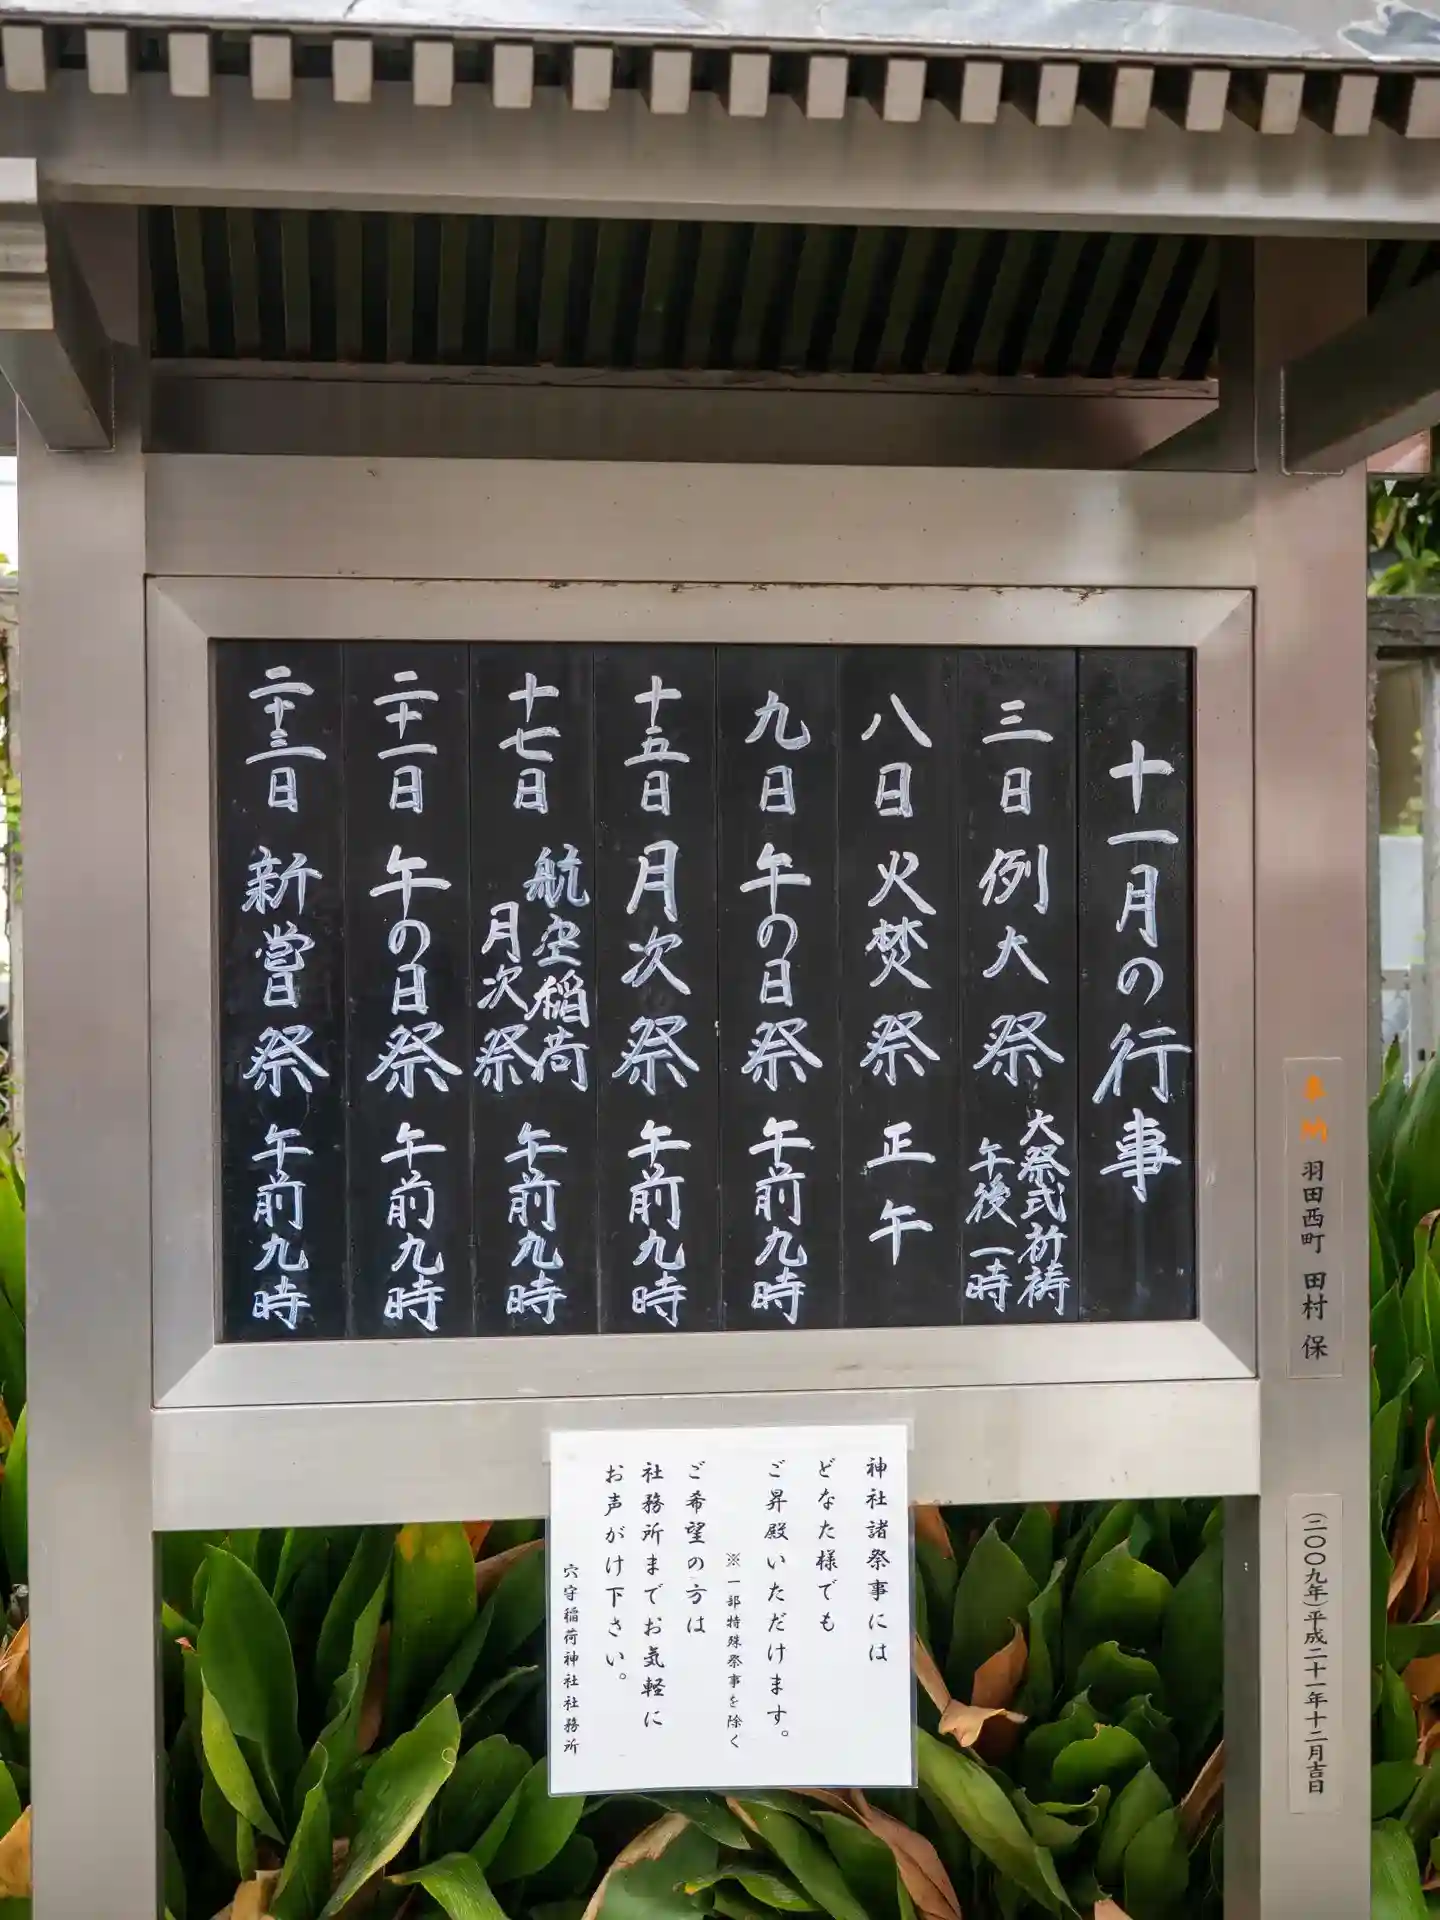 十一月の行事
三日 例大祭 大祭式祈祷
午後一時
八日 火焚祭 正午
九日 午の日祭 午前九時
十五日 月次祭 午前九時
十七日 航空稲荷
月次祭 午前九時
二十一日 午の日祭 午前九時
二十三日 新嘗祭 午前九時
神社諸祭事には
どなた様でも
ご昇殿いただけます。
※一部特殊祭事を除く
ご希望の方は
社務所までお気軽に
お声がけ下さい。
穴守稲荷神社社務所
奉納 羽田西町 田村 保
(二〇〇九年)平成二十一年十二月吉日